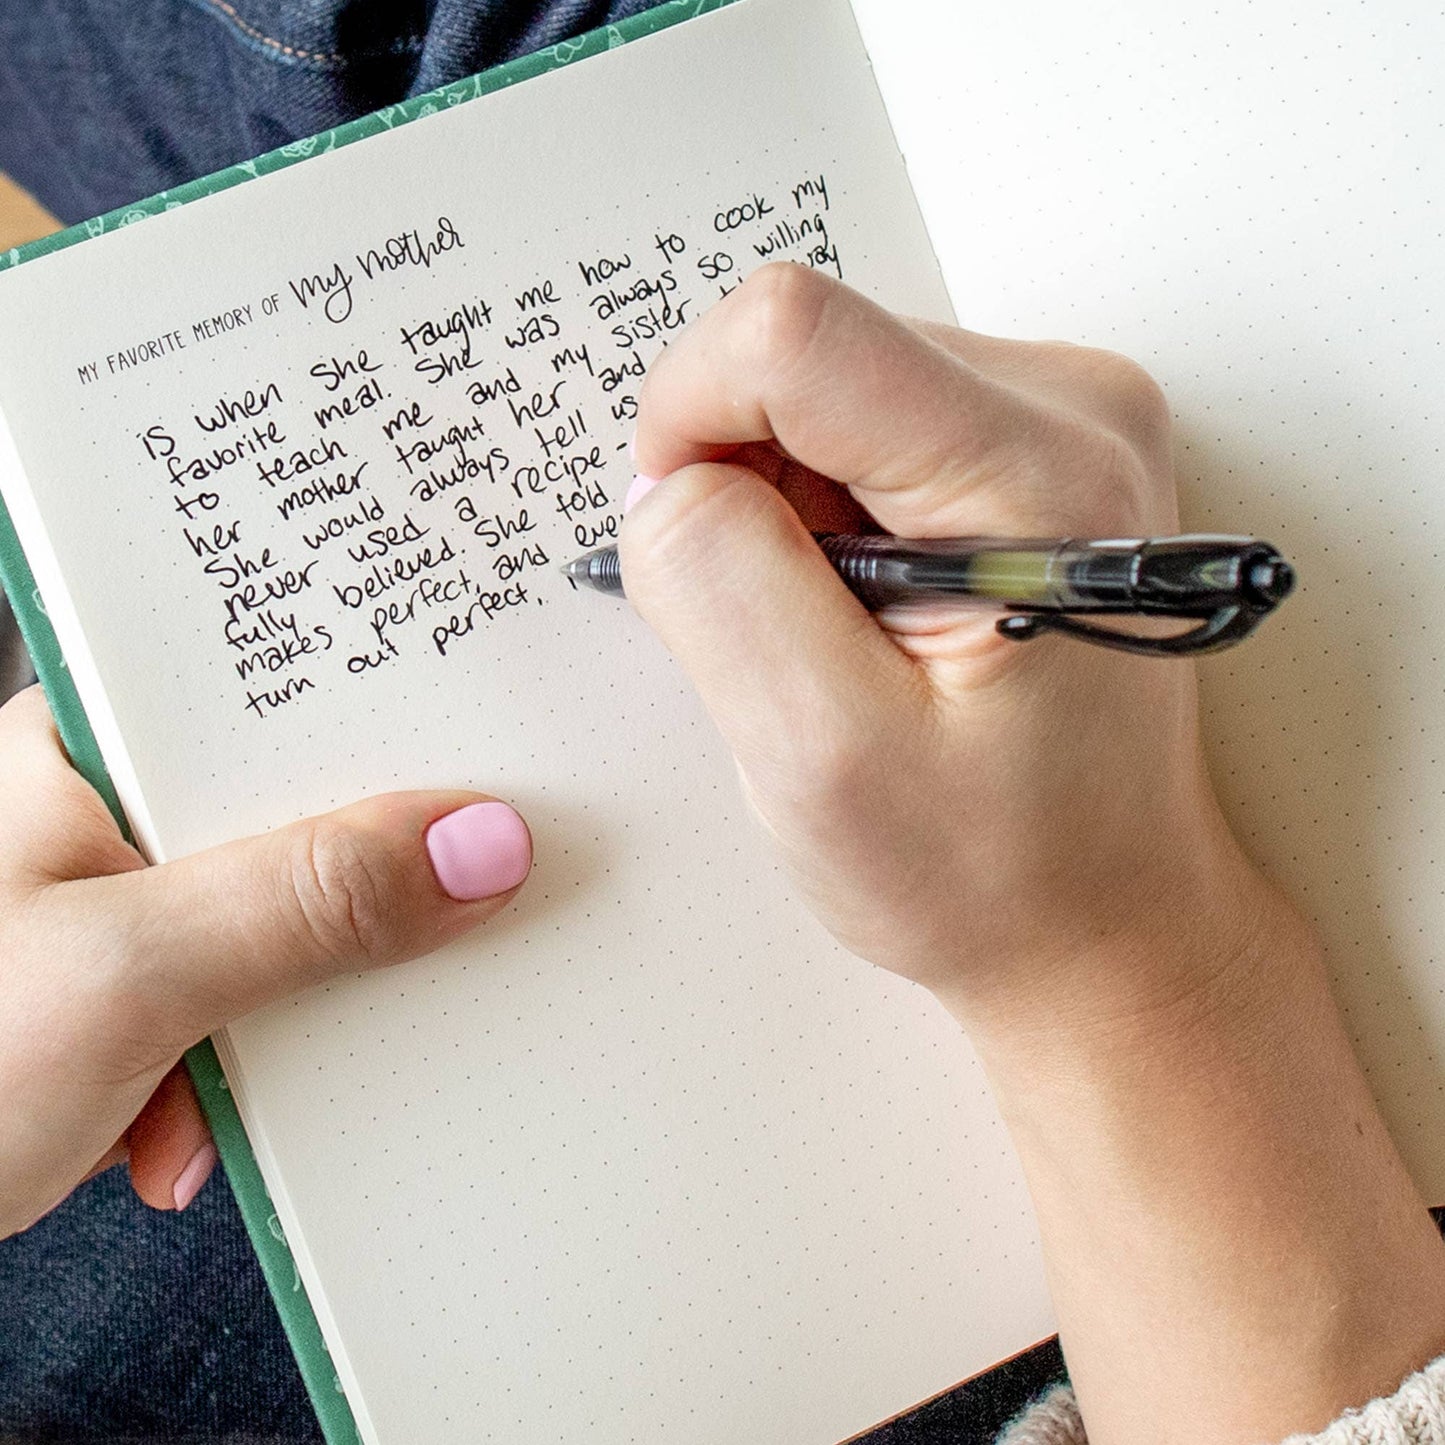 MY FAVORITE MEMORY OF my mother
is when she taught me how to cook my
favorite meal. She was always so willing
to teach me and my sister way
her mother taught her and
She would always tell us
never used a recipe -
fully believed. She told
makes perfect, and eve
turn out perfect,